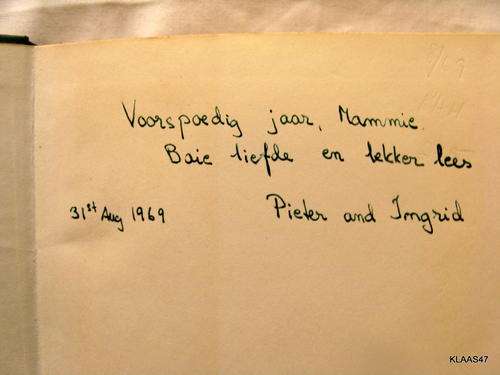 Voorspoedig jaar, Mammie.
Baie liefde en lekker lees
31st Aug 1969
Pieter and Ingrid
KLAAS47